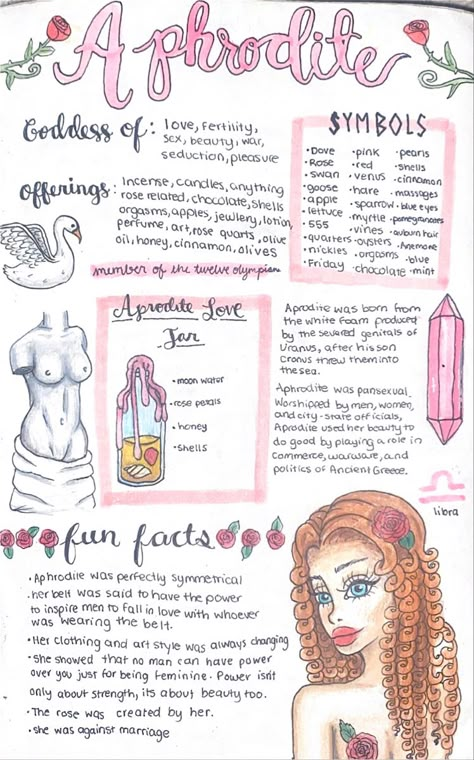 Aphrodite
Goddess of: love, fertility,
sex, beauty, war,
seduction, pleasure
offerings: Incense, candles, anything
rose related, chocolate, shells
orgasms, apples, jewllery, lotion,
perfume, art, rose quarts, olive
oil, honey, cinnamon, olives
member of the twelve olympian
SYMBOLS
•Dove •pink •pearls
•Rose •red •shells
•swan •venus •cinnamon
•goose •hare •massages
•apple •sparrow •blue eyes
•lettuce •myrtle •pomegranates
•555 •vines •auburn hair
•quarters •oysters •Anemone
•nickles •orgasms •blue
•Friday •chocolate •mint
Aprodite Love
Jar
•moon water
•rose petals
•honey
•shells
Aprodite was born from
the white foam produced
by the severed genitals of
Uranus, after his son
Cronus threw them into
the sea.
Aphrodite was pansexual.
Worshipped by men, women,
and city-state officials,
Aprodite used her beauty to
do good by playing a role in
commerce, warware, and
politics of Ancient Greece.
libra
fun facts
•Aphrodite was perfectly symmetrical
•her belt was said to have the power
to inspire men to fall in love with whoever
was wearing the belt.
•Her clothing and art style was always changing
•She showed that no man can have power
over you just for being feminine. Power isn't
only about strength, its about beauty too.
•The rose was created by her.
•she was against marriage